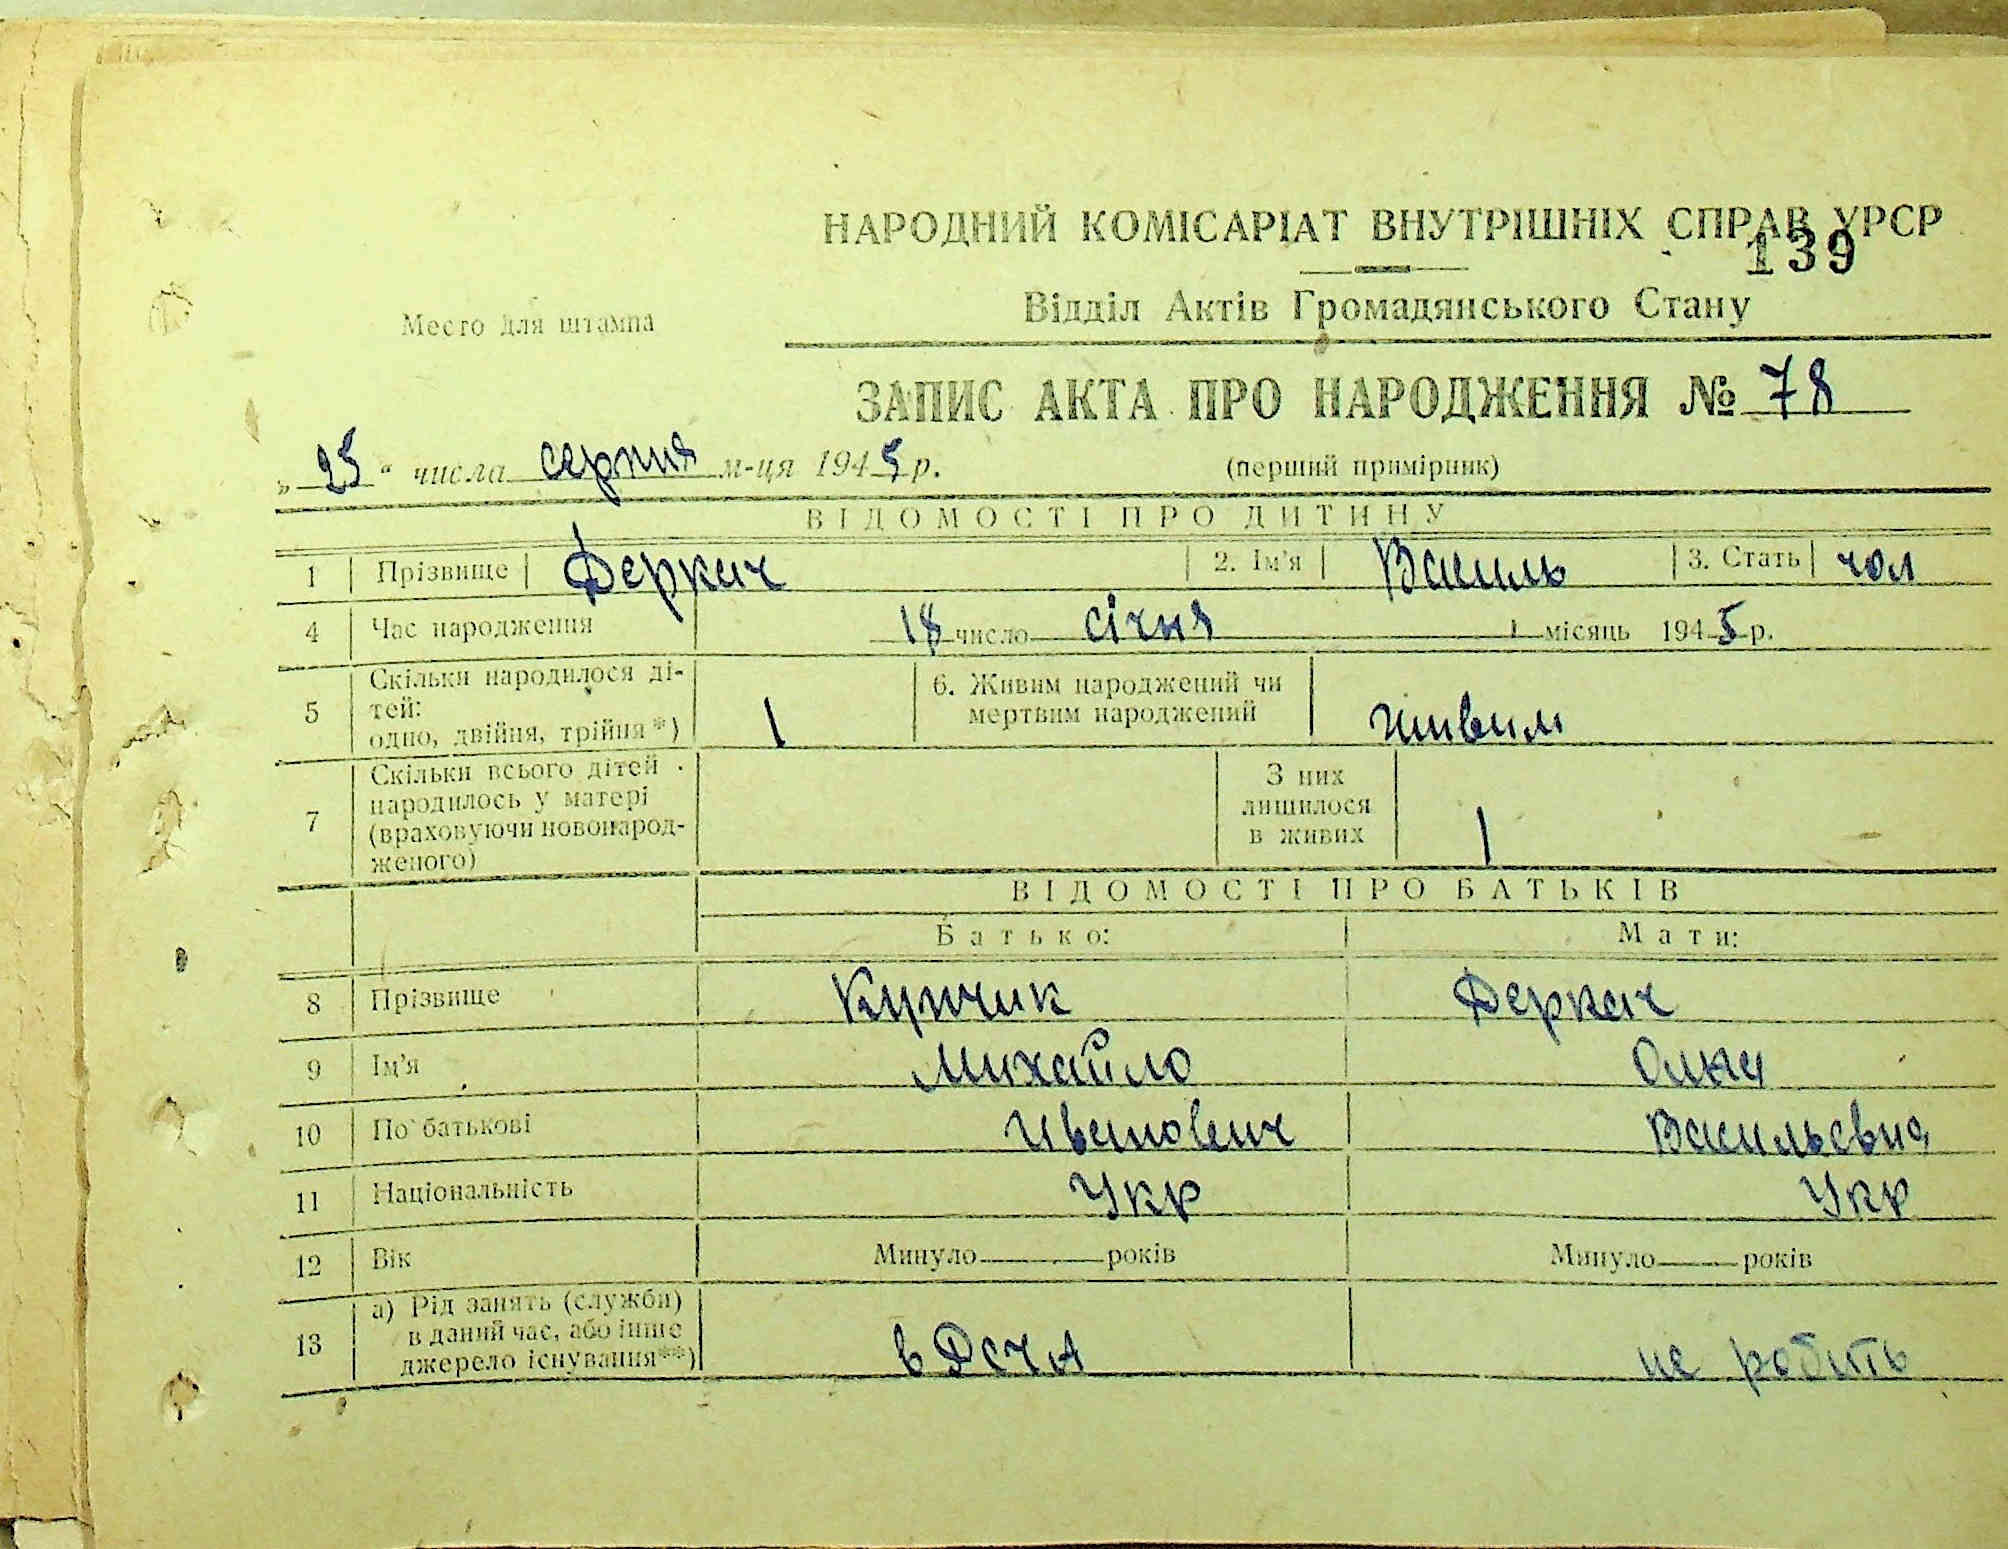 НАРОДНИЙ КОМІСАРІАТ ВНУТРІШНІХ СПРАВ УРСР
139
Место для штампа
Відділ Актів Громадянського Стану
ЗАПИС АКТА ПРО НАРОДЖЕННЯ № 78
„25“ числа серпня м-ця 1945 р. (перший примірник)
ВІДОМОСТІ ПРО ДИТИНУ
1 Прізвище Деркач 2. Ім'я Василь 3. Стать чол
4 Час народження 18 число січня місяць 1945 р.
5 Скільки народилося ді-
тей:
одно, двійня, трійня*) 1
6. Живим народжений чи
мертвим народжений живим
7 Скільки всього дітей
народилось у матері
(враховуючи новонарод-
женого)
З них
лишилося
в живих 1
ВІДОМОСТІ ПРО БАТЬКІВ
Батько: Мати:
8 Прізвище Купчик Деркач
9 Ім'я Михайло Ольга
10 По батькові Иванович Васильевна
11 Національність Укр Укр
12 Вік Минуло років Минуло років
13 а) Рід занять (служби)
в даний час, або інше
джерело існування**) в РСЧА не робить